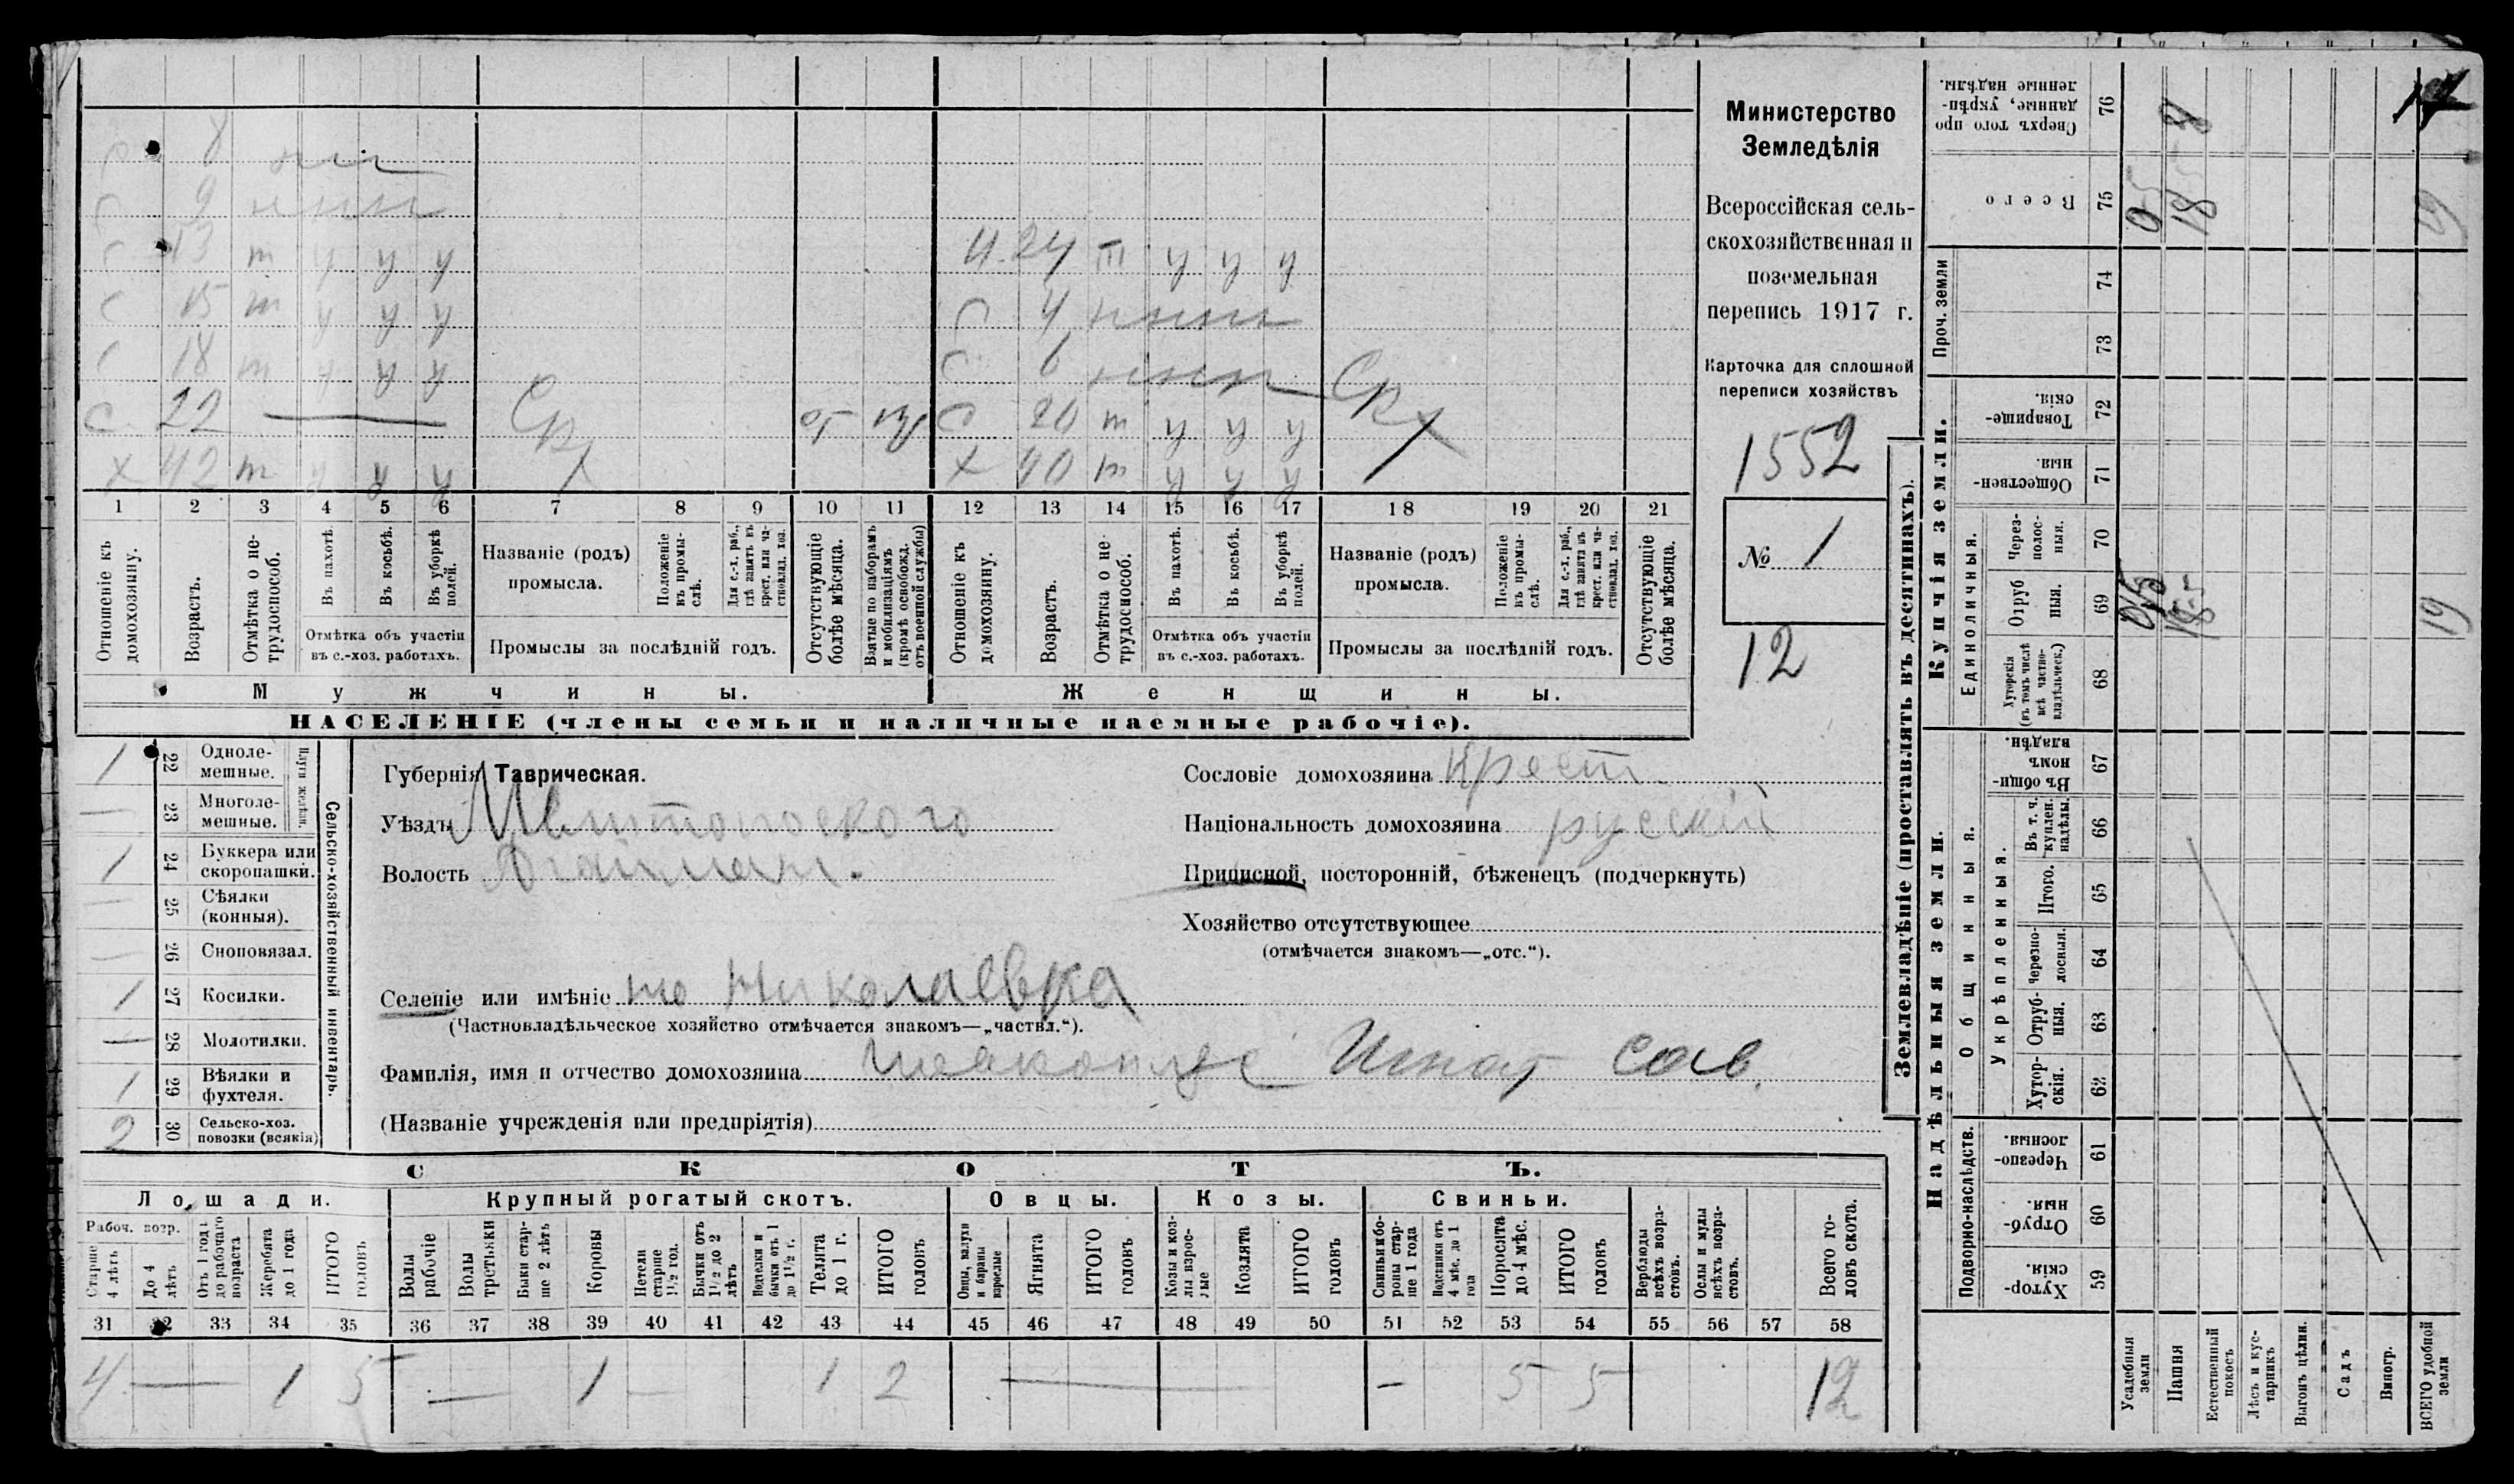 8 нп
9 ннн
С 13 т у у у Н. 24 т у у у
С 15 т у у у С 4 нннн
С 18 т у у у С 6 нннн
С 22 — Срх от Вз С 20 т у у у Срх
Х 42 т у у у Х 40 т у у у
1 2 3 4 5 6 7 8 9 10 11 12 13 14 15 16 17 18 19 20 21
Отношеніе къ домохозяину.
Возрастъ.
Отмѣтка о нетрудоспособ.
Въ пахотѣ.
Въ косьбѣ.
Въ уборкѣ полей.
Отмѣтка объ участіи въ с.-хоз. работахъ.
Названіе (родъ) промысла.
Положеніе въ промыслѣ.
Для с.-х. раб., гдѣ занятъ въ крест. или частновлад. хоз.
Промыслы за послѣдній годъ.
Отсутствующіе болѣе мѣсяца.
Взятые по наборамъ и мобилизаціямъ (кромѣ освобожд. отъ военной службы)
Отношеніе къ домохозяину.
Возрастъ.
Отмѣтка о нетрудоспособ.
Въ пахотѣ.
Въ косьбѣ.
Въ уборкѣ полей.
Отмѣтка объ участіи въ с.-хоз. работахъ.
Названіе (родъ) промысла.
Положеніе въ промыслѣ.
Для с.-х. раб., гдѣ занята въ крест. или частновлад. хоз.
Промыслы за послѣдній годъ.
Отсутствующіе болѣе мѣсяца.
Мужчины. Женщины.
НАСЕЛЕНІЕ (члены семьи и наличные наемные рабочіе).
Министерство
Земледѣлія
Всероссійская сель-
скохозяйственная и
поземельная
перепись 1917 г.
Карточка для сплошной
переписи хозяйствъ
1552
№ 1
12
Сельско-хозяйственный инвентарь.
Плуги желѣзн.
1 22 Одноле-мешные.
— 23 Многоле-мешные.
1 24 Буккера или скоропашки.
— 25 Сѣялки (конныя).
— 26 Сноповязал.
1 27 Косилки.
— 28 Молотилки.
1 29 Вѣялки и фухтеля.
2 30 Сельско-хоз. повозки (всякія)
Губернія Таврическая.
Уѣздъ
Волость
Селеніе или имѣніе Николаевка
(Частновладѣльческое хозяйство отмѣчается знакомъ—„частвл.“).
Фамилія, имя и отчество домохозяина Игнат Сав.
(Названіе учрежденія или предпріятія)
Сословіе домохозяина Крест.
Національность домохозяина русскій
Приписной, посторонній, бѣженецъ (подчеркнуть)
Хозяйство отсутствующее
(отмѣчается знакомъ—„отс.“).
СКОТЪ.
Лошади. Крупный рогатый скотъ. Овцы. Козы. Свиньи.
Рабоч. возр.
Старше 4 лѣтъ
До 4 лѣтъ
Отъ 1 года до рабочаго возраста
Жеребята до 1 года
ИТОГО головъ
Волы рабочіе
Волы третьяки
Быки старше 2 лѣтъ
Коровы
Нетели старше 1½ год.
Бычки отъ 1½ до 2 лѣтъ
Подтелки и бычки отъ 1 до 1½ г.
Телята до 1 г.
ИТОГО головъ
Овцы, валухи и бараны взрослые
Ягнята
ИТОГО головъ
Козы и козлы взрослые
Козлята
ИТОГО головъ
Свиньи и боровы старше 1 года
Подсвинки отъ 4 мѣс. до 1 года
Поросята до 4 мѣс.
ИТОГО головъ
Верблюды всѣхъ возрастовъ.
Ослы и мулы всѣхъ возрастовъ.
Всего головъ скота.
31 32 33 34 35 36 37 38 39 40 41 42 43 44 45 46 47 48 49 50 51 52 53 54 55 56 57 58
4 — 1 5 — 1 — 1 2 — — 5 5 12
Землевладѣніе (проставлять въ десятинахъ).
Надѣльныя земли. Купчія земли.
Подворно-наслѣдств.
Общинныя.
Укрѣпленныя.
Единоличныя.
Проч. земли
59 Хутор-скія.
60 Отруб-ныя.
61 Черезпо-лосныя.
62 Хутор-скія.
63 Отруб-ныя.
64 Черезпо-лосныя.
65 Итого.
66 Въ т. ч. куплен. надѣлы.
67 Въ общинномъ владѣн.
68 Хуторскія (въ томъ числѣ всѣ частно-владѣльческ.)
69 Отрубныя.
70 Через-полос-ныя.
71 Обществен-ныя.
72 Товарище-скія.
73
74
75 Всего
76 Сверхъ того проданные, укрѣпленные надѣлы.
Усадебныя земли
Пашня
Естественный покосъ
Лѣсъ и кустарникъ
Выгонъ цѣлин.
Садъ
Виногр.
ВСЕГО удобной земли
19
19